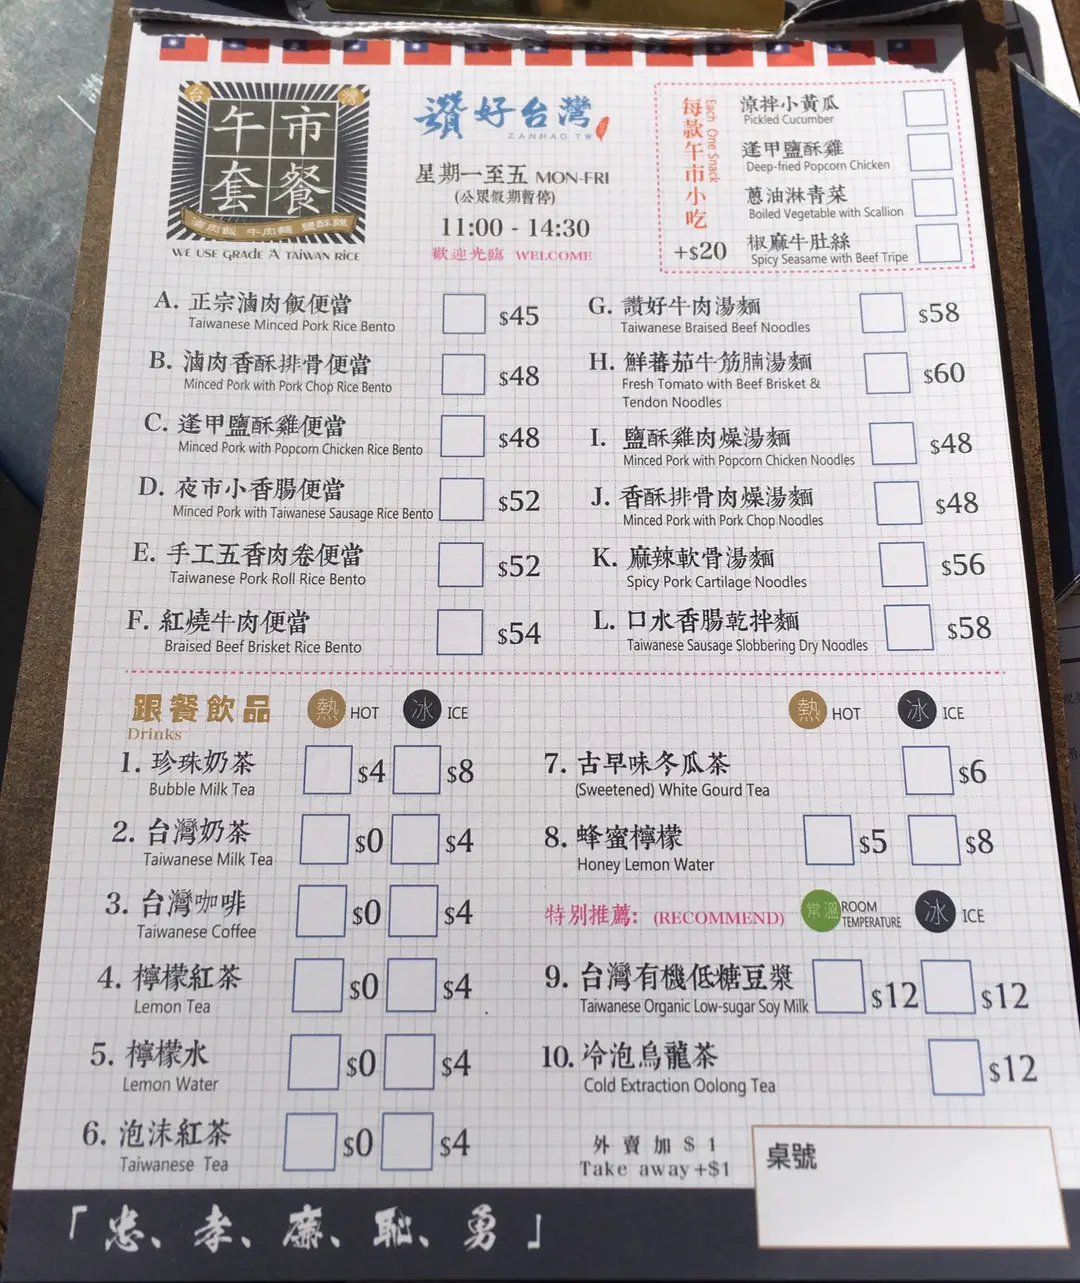 台灣
午市
套餐
滷肉飯 牛肉麵 鹽酥雞
WE USE GRADE A TAIWAN RICE
讚好台灣
ZANHAO TW
星期一至五 MON-FRI
(公眾假期暫停)
11:00 - 14:30
歡迎光臨 WELCOME
每款午市小吃
Each One Snack
+$20
涼拌小黃瓜
Pickled Cucumber
逢甲鹽酥雞
Deep-fried Popcorn Chicken
蔥油淋青菜
Boiled Vegetable with Scallion
椒麻牛肚絲
Spicy Seasame with Beef Tripe
A. 正宗滷肉飯便當 $45
Taiwanese Minced Pork Rice Bento
B. 滷肉香酥排骨便當 $48
Minced Pork with Pork Chop Rice Bento
C. 逢甲鹽酥雞便當 $48
Minced Pork with Popcorn Chicken Rice Bento
D. 夜市小香腸便當 $52
Minced Pork with Taiwanese Sausage Rice Bento
E. 手工五香肉卷便當 $52
Taiwanese Pork Roll Rice Bento
F. 紅燒牛肉便當 $54
Braised Beef Brisket Rice Bento
G. 讚好牛肉湯麵 $58
Taiwanese Braised Beef Noodles
H. 鮮蕃茄牛筋腩湯麵 $60
Fresh Tomato with Beef Brisket &
Tendon Noodles
I. 鹽酥雞肉燥湯麵 $48
Minced Pork with Popcorn Chicken Noodles
J. 香酥排骨肉燥湯麵 $48
Minced Pork with Pork Chop Noodles
K. 麻辣軟骨湯麵 $56
Spicy Pork Cartilage Noodles
L. 口水香腸乾拌麵 $58
Taiwanese Sausage Slobbering Dry Noodles
跟餐飲品 熱 HOT 冰 ICE
Drinks
1. 珍珠奶茶 $4 $8
Bubble Milk Tea
2. 台灣奶茶 $0 $4
Taiwanese Milk Tea
3. 台灣咖啡 $0 $4
Taiwanese Coffee
4. 檸檬紅茶 $0 $4
Lemon Tea
5. 檸檬水 $0 $4
Lemon Water
6. 泡沫紅茶 $0 $4
Taiwanese Tea
熱 HOT 冰 ICE
7. 古早味冬瓜茶 $6
(Sweetened) White Gourd Tea
8. 蜂蜜檸檬 $5 $8
Honey Lemon Water
特別推薦: (RECOMMEND) 常溫 ROOM TEMPERATURE 冰 ICE
9. 台灣有機低糖豆漿 $12 $12
Taiwanese Organic Low-sugar Soy Milk
10. 冷泡烏龍茶 $12
Cold Extraction Oolong Tea
外賣加 $ 1
Take away+$1
桌號
「忠、孝、廉、恥、勇」